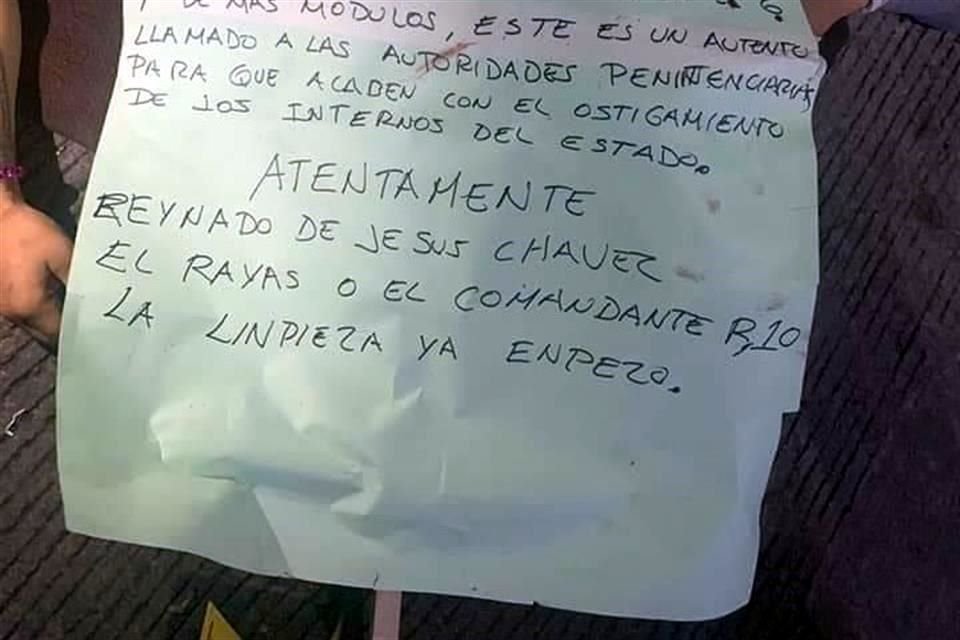 Y DE MAS MÓDULOS, ESTE ES UN AUTENTO
LLAMADO A LAS AUTORIDADES PENINTENCIARIAS
PARA QUE ACABEN CON EL OSTIGAMIENTO
DE LOS INTERNOS DEL ESTADO.
ATENTAMENTE
REYNADO DE JESUS CHAVEZ
EL RAYAS O EL COMANDANTE R,10
LA LINPIEZA YA ENPEZO.